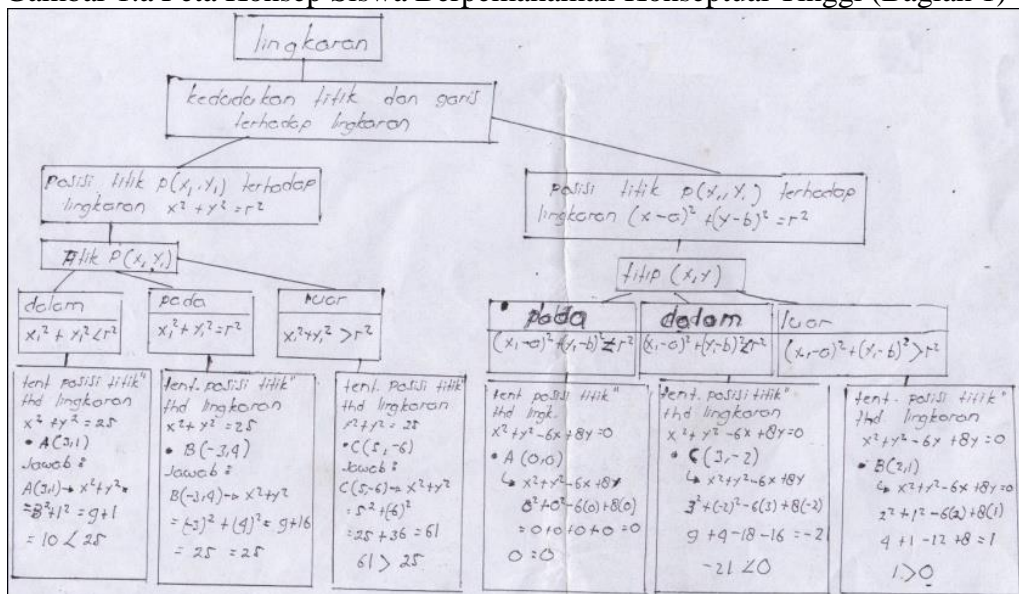 Gambar 1.a Peta Konsep Siswa Berpemahaman Konseptual Tinggi (Bagian 1)
lingkaran
kedudukan titik dan garis
terhadap lingkaran
posisi titik P(x₁, y₁) terhadap
lingkaran x² + y² = r²
titik P(x₁ y₁)
dalam
x₁² + y₁² < r²
pada
x₁² + y₁² = r²
luar
x₁² + y₁² > r²
tent posisi titik"
thd lingkaran
x² + y² = 25
• A(3,1)
Jawab :
A(3,1) → x² + y² =
= 3² + 1² = 9 + 1
= 10 < 25
tent. posisi titik"
thd lingkaran
x² + y² = 25
• B(-3,4)
Jawab :
B(-3,4) → x² + y²
= (-3)² + (4)² = 9 + 16
= 25 = 25
tent. posisi titik"
thd lingkaran
x² + y² = 25
• C(5,-6)
Jawab :
C(5,-6) → x² + y²
= 5² + (-6)²
= 25 + 36 = 61
61 > 25
posisi titik P(x₁, y₁) terhadap
lingkaran (x-a)² + (y-b)² = r²
titip (x,y)
• pada
(x₁-a)² + (y₁-b)² = r²
dalam
(x₁-a)² + (y₁-b)² < r²
luar
(x₁-a)² + (y₁-b)² > r²
tent posisi titik"
thd lingk.
x² + y² - 6x + 8y = 0
• A (0,0)
↳ x² + y² - 6x + 8y
0² + 0² - 6(0) + 8(0)
= 0 + 0 + 0 + 0 = 0
0 = 0
tent. posisi titik"
thd lingkaran
x² + y² - 6x + 8y = 0
• C (3,-2)
↳ x² + y² - 6x + 8y
3² + (-2)² - 6(3) + 8(-2)
9 + 4 - 18 - 16 = -21
-21 < 0
tent. posisi titik"
thd lingkaran
x² + y² - 6x + 8y = 0
• B(2,1)
↳ x² + y² - 6x + 8y = 0
2² + 1² - 6(2) + 8(1)
4 + 1 - 12 + 8 = 1
1 > 0